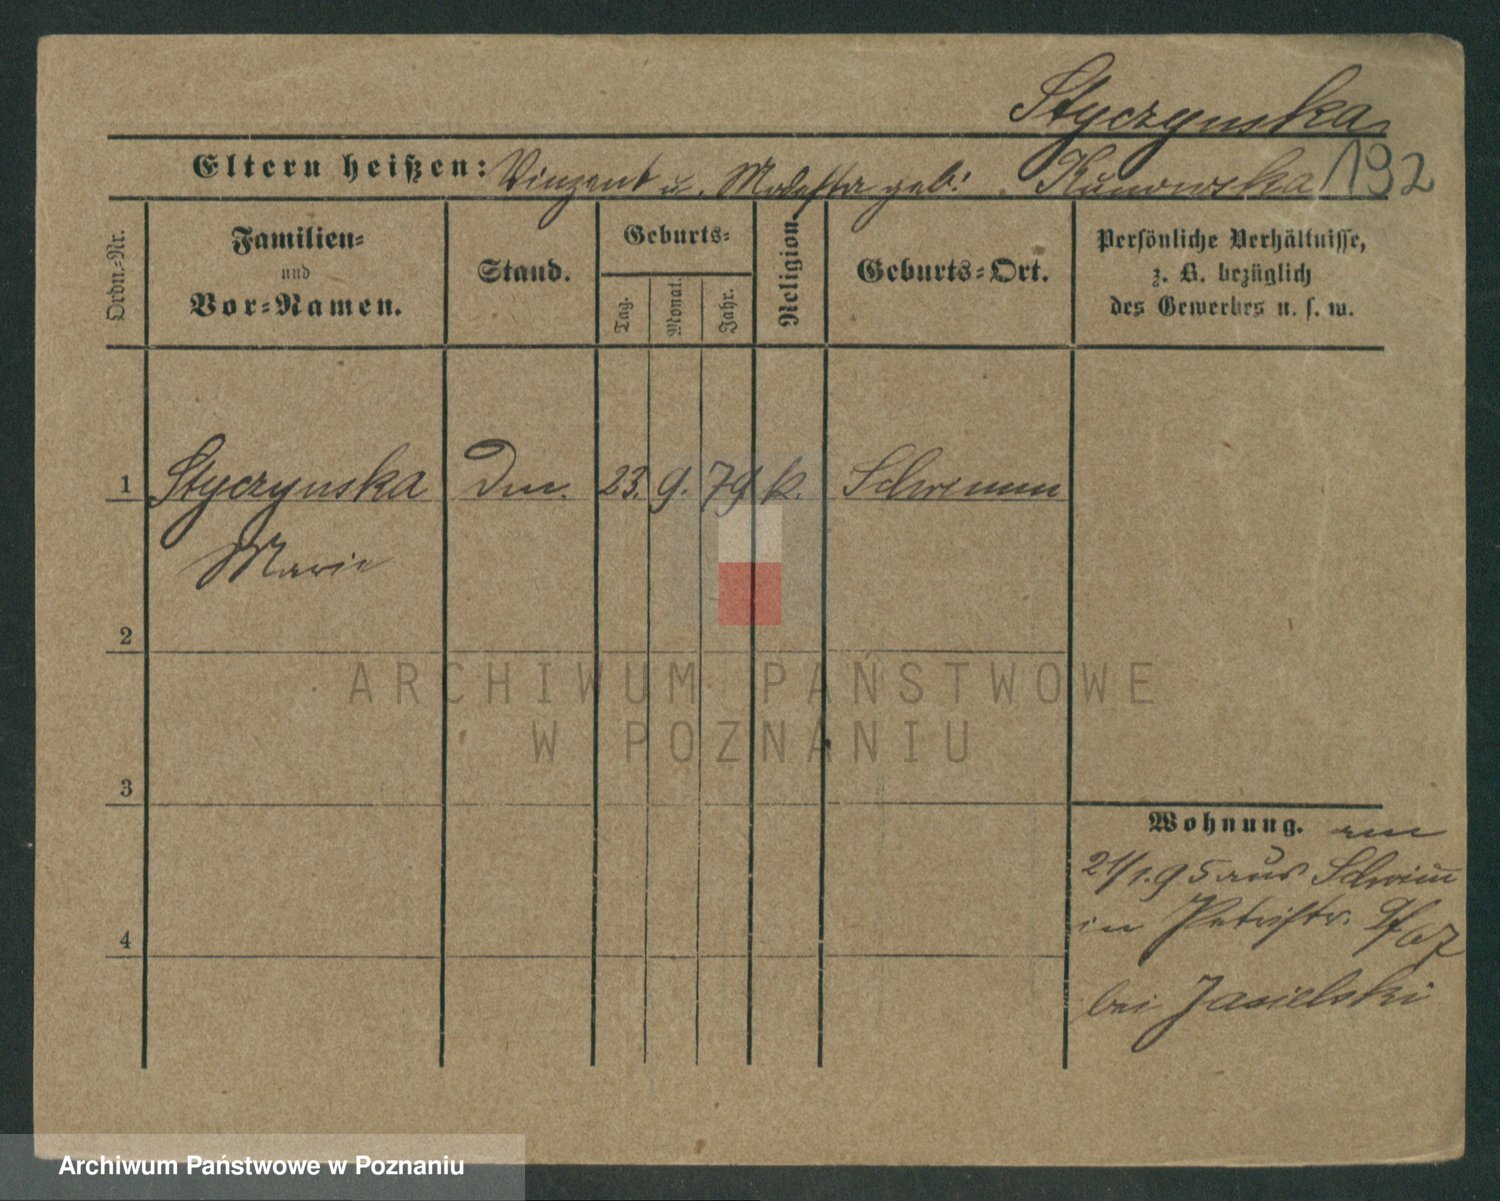 Styczynska
Eltern heißen: Vinzent u. Modesta geb: Kunowska 192
Ordn.-Nr.
Familien-
und
Vor-Namen.
Stand.
Geburts-
Tag.
Monat.
Jahr.
Religion.
Geburts-Ort.
Persönliche Verhältnisse,
z. B. bezüglich
des Gewerbes u. s. w.
1 Styczynska 23. 9. 79 k. Schrimm
Marie
2
3
4
Wohnung. am
21/1.95 aus Schrim
in Petristr.
bei Jasielski
ARCHIWUM PAŃSTWOWE
W POZNANIU
Archiwum Państwowe w Poznaniu